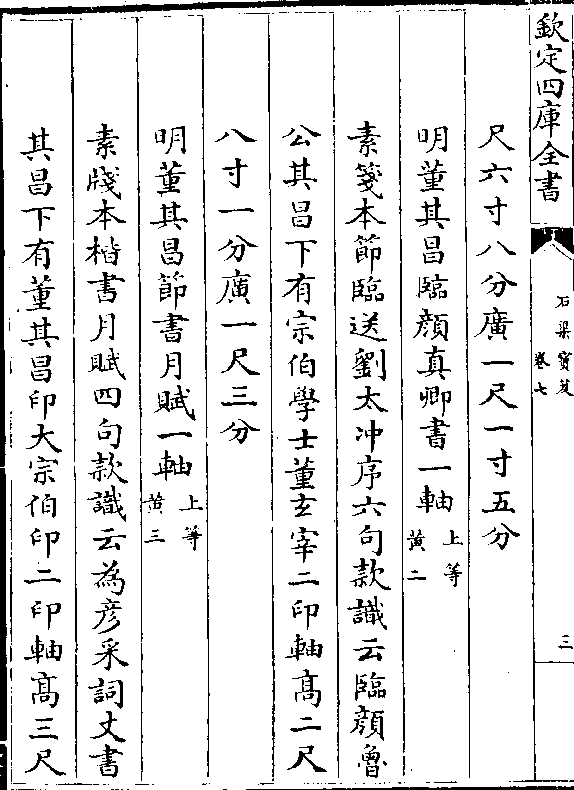 欽定四庫全書
石渠寶笈
卷七
三
尺六寸八分廣一尺一寸五分
明董其昌臨顔真卿書一軸 上等 黄二
素箋本節臨送劉太冲序六句款識云臨顔魯
公其昌下有宗伯學士董玄宰二印軸髙二尺
八寸一分廣一尺三分
明董其昌節書月賦一軸 上等 黄三
素牋本楷書月賦四句款識云為彦采詞丈書
其昌下有董其昌印大宗伯印二印軸髙三尺